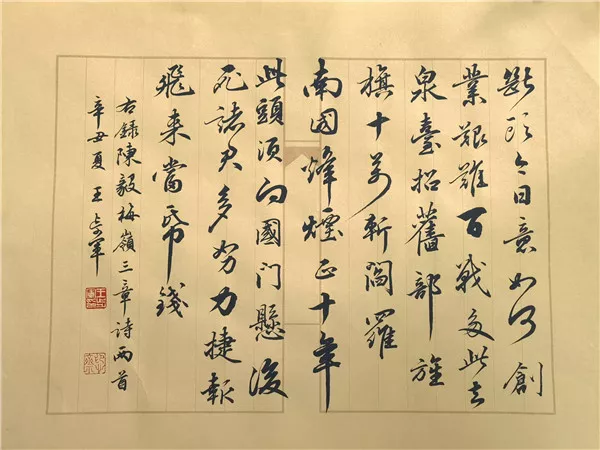 斷頭今日意如何創
業艱難百戰多此去
泉臺招舊部旌
旗十萬斬閻羅
南国烽煙正十年
此頭須向國门懸後
死諸君多努力捷報
飛来當帋錢
右錄陳毅梅嶺三章詩兩首
辛丑夏 王軍